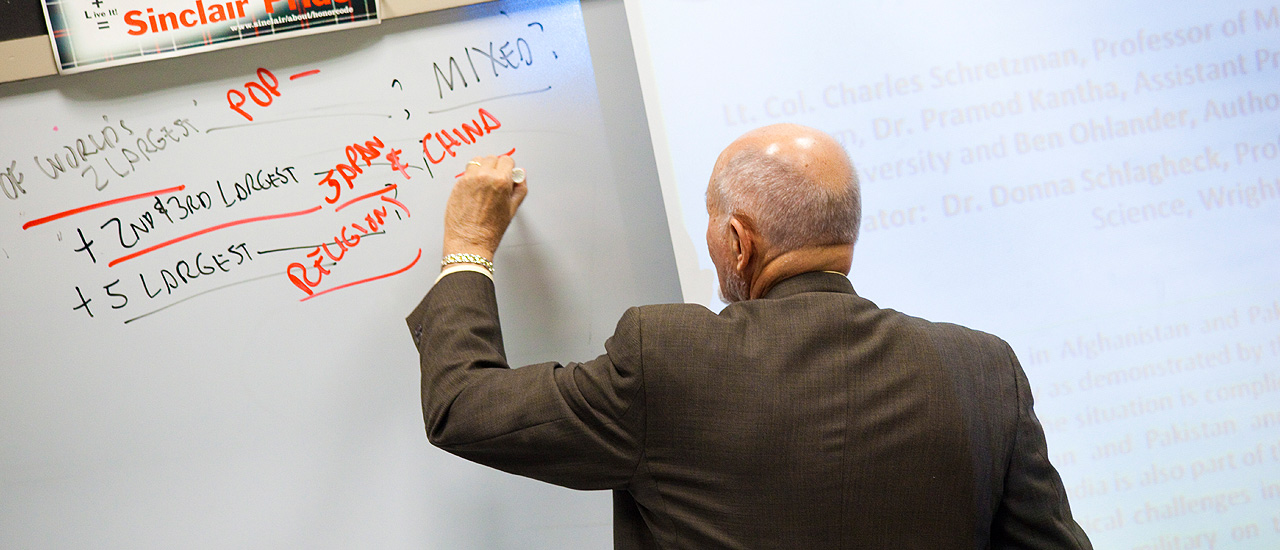 +
Live It!
=
Sinclair Pride
www.sinclair/about/honorcode
OF WORLD'S
2 LARGEST POP – ; MIXED?
+ 2ND & 3RD LARGEST JAPAN & CHINA
+ 5 LARGEST RELIGIONS
Lt. Col. Charles Schretzman, Professor of M
Dr. Pramod Kantha, Assistant Pr
versity and Ben Ohlander, Autho
ator: Dr. Donna Schlagheck, Prof
Science, Wright
in Afghanistan and Pak
as demonstrated by th
situation is compli
and Pakistan an
dia is also part of t
cal challenges in
military on